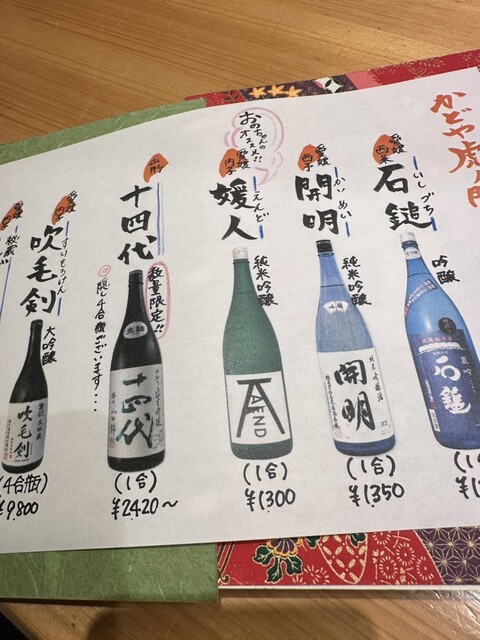 かどや虎ノ門
愛媛
西条
石鎚
いしづち
吟醸
石鎚
愛媛
西予
開明
かいめい
純米吟醸
開明
(1合)
¥1350
おのちゃんの
オススメ!!
愛媛
内子
媛人
えんど
純米吟醸
AEND
(1合)
¥1300
山形
十四代
数量限定!!
隠し4合瓶がございます・・・
生詰
十四代
(1合)
¥2420〜
愛媛
内子
吹毛剣
すいもうけん
大吟醸
吹毛剣
(4合瓶)
¥9,800
愛媛
内子